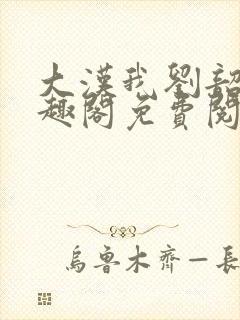 大漢我劉
趣閣免費閱
烏魯木齊一長